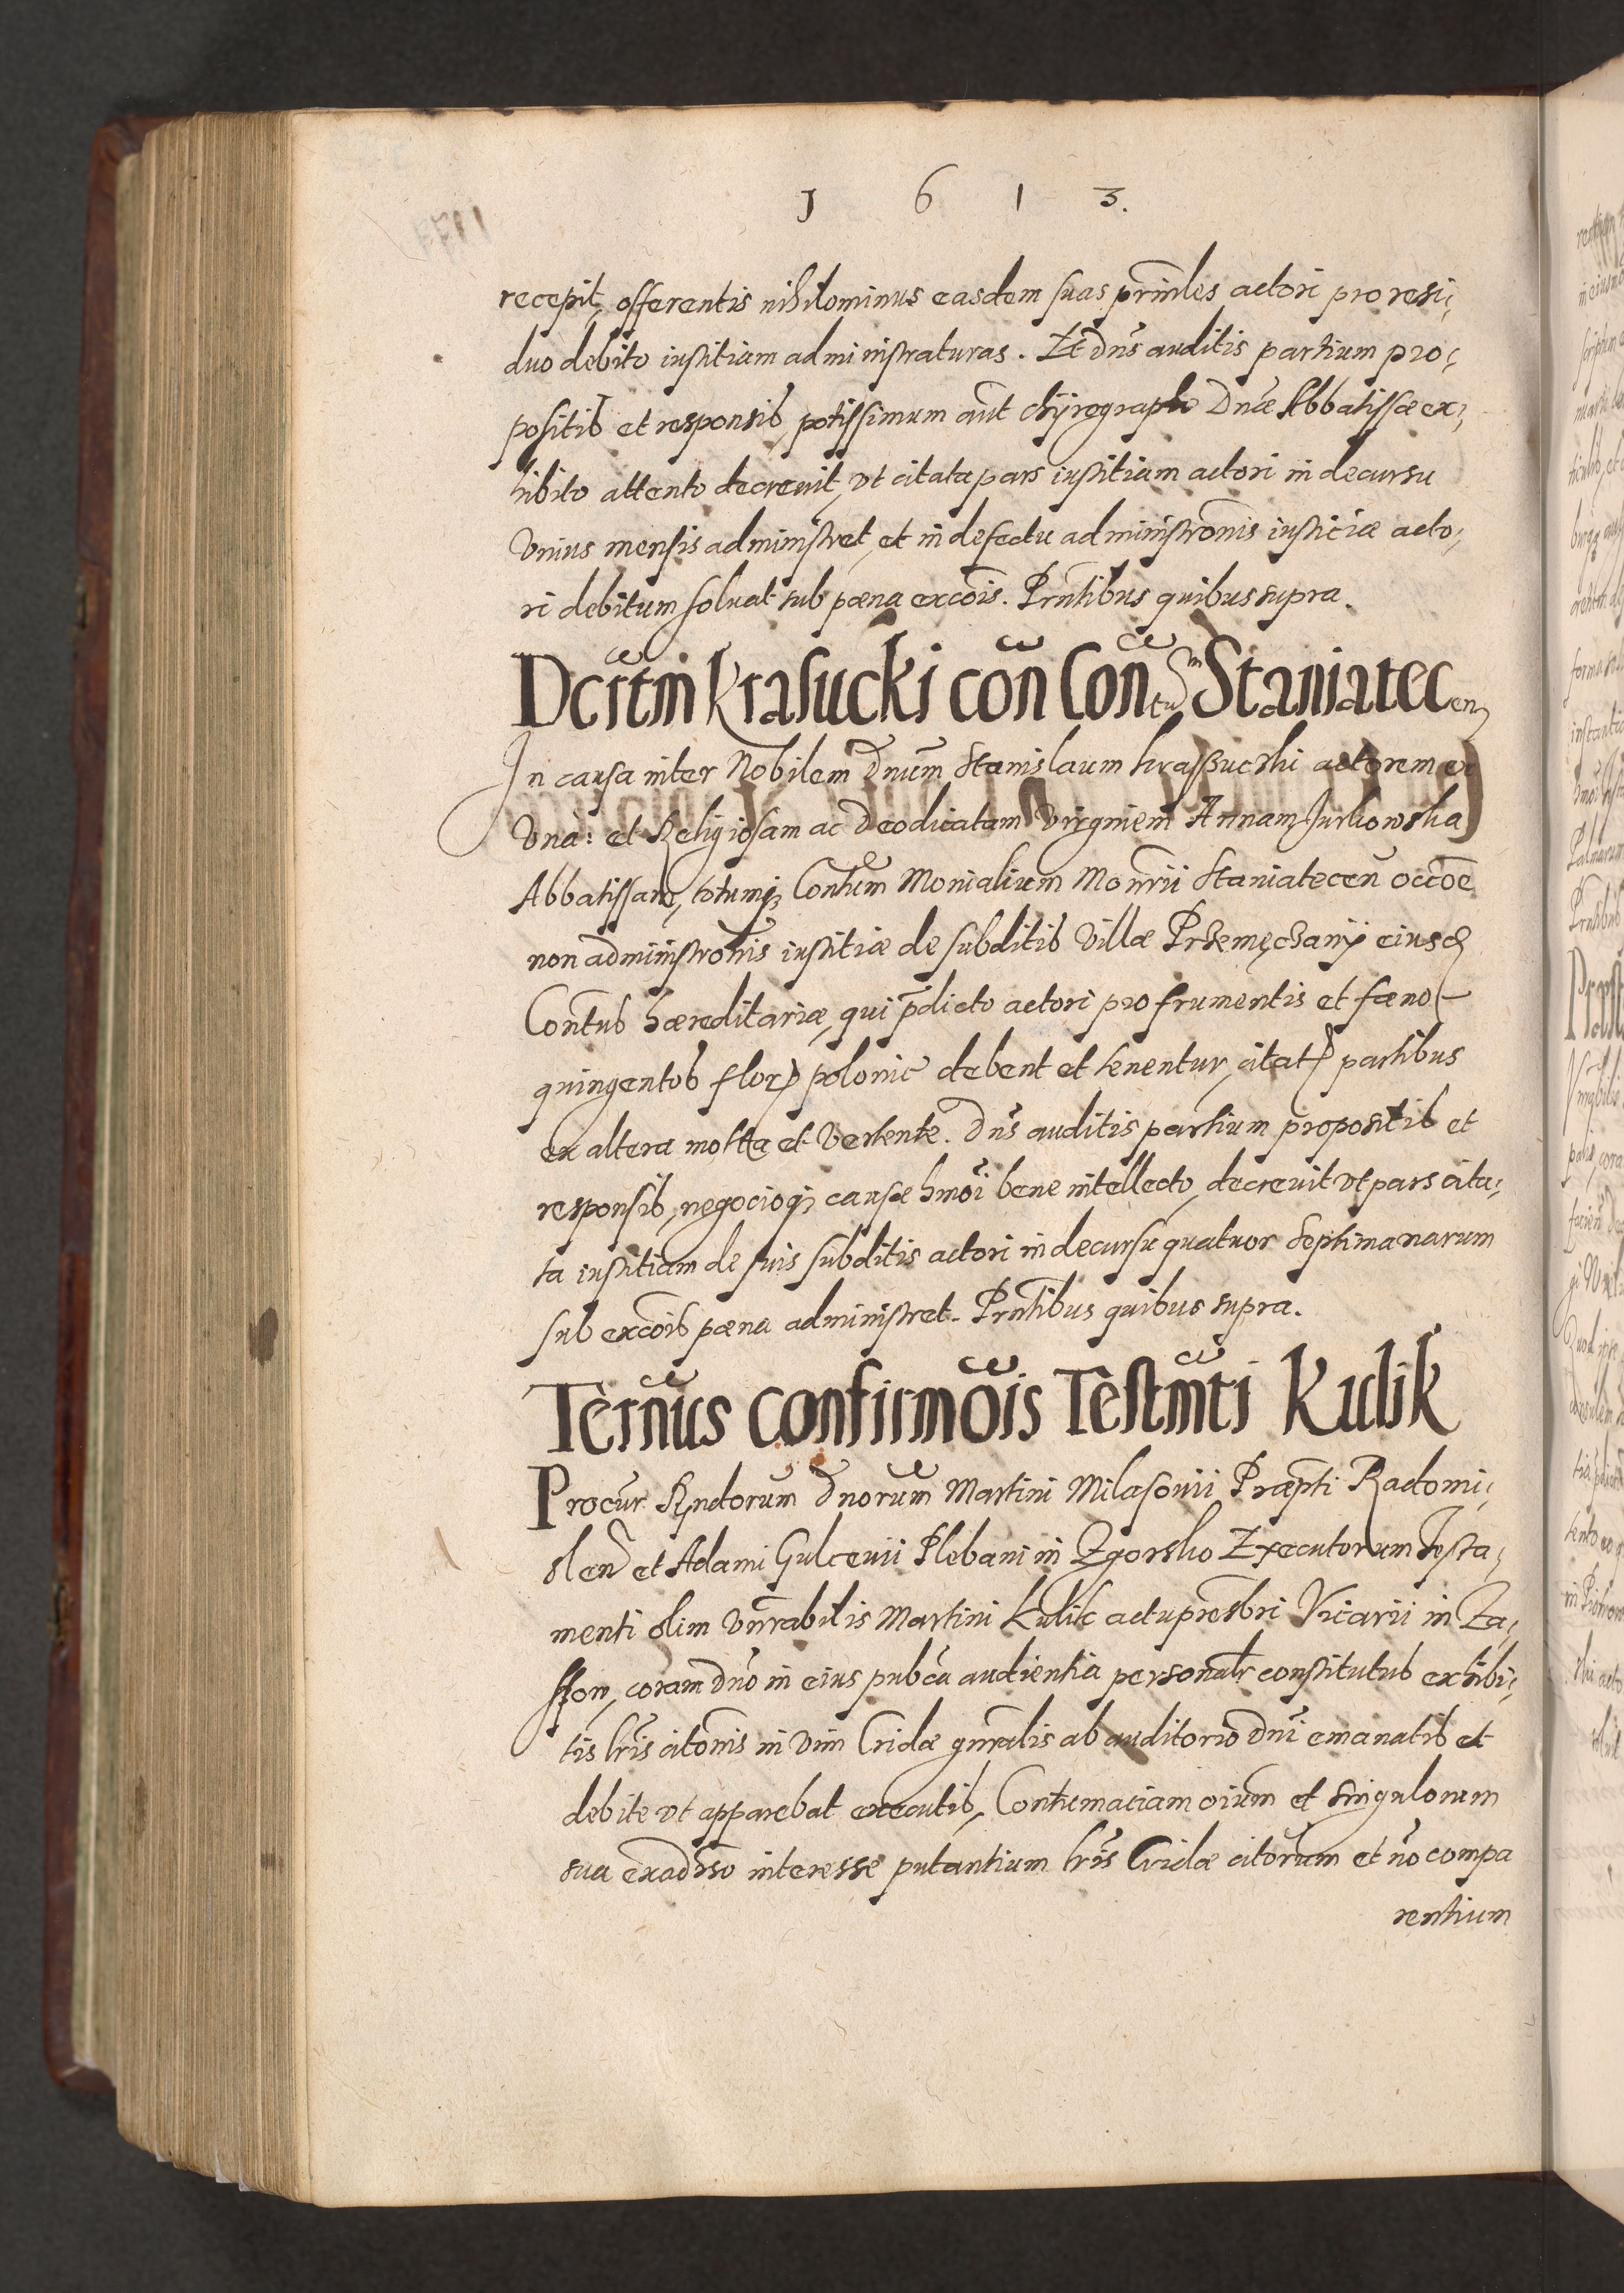 1 6 1 3.
recepit, offerentis nihilominus easdem suas prinĩles actori pro resi,
duo debito iustitiam administraturas. Et Dn̄s auditis partium pro,
positis et responsis, potissimum aūt chyrographo Dnæ Abbatissæ ex,
hibito attento decrevit, vt citata pars iustitiam actori in decursu
vnius mensis administret, et in defectu administrõnis iusticiæ acto,
ri debitum soluat sub pœna excõis. Prñtibus quibus supra.
Dcrtm̃ Krasucki coñ Coñtum Staniatecen
In causa inter Nobilem Dnũm Stanislaum Krassucski actorem ex
vna: et Religiosam ac Deodicatam Virginem Annam Jurkowska
Abbatissam, totumq; Contũm Monialium Moñrii Staniatecen̄ occõe
non administrõnis iustitiæ de subditis Villæ Przemęczany eiusd
Contus hæreditariæ, qui p̃dicto actori pro frumentis et fæno
quingentos flor polonic debent et tenentur, citat partibus
ex altera motta et vertente. Dn̄s auditis partium propositis et
responsis, negocioq; causæ hmõi bene intellecto, decrevit vt pars cita,
ta iustitiam de suis subditis actori in decursu quatuor septimanarum
sub excõis pœna administret. Prñtibus quibus supra.
Terñus confirmõis Testm̃ti Kulik
Procur̃ Rn̄dorum Dnorũm Martini Milasovii Præpti Radomi,
slen et Adami Gulcevii Plebani in Zgorsko Executorum Testa,
menti olim Vn̄rabilis Martini Kulik actu pr̃esbri Vicarii in Za,
ssow, coram Dño in eius pub̃ca audientia personalr constitutus exhibi,
tis lr̃is citõnis in vim Cridæ gñralis ab auditorio Dnĩ emanatis et
debite vt apparebat executis, Contumaciam oiũm et singulorum
sua exadṽso interesse putantium lr̃is Cridæ citõrum et nõ compa
rentium